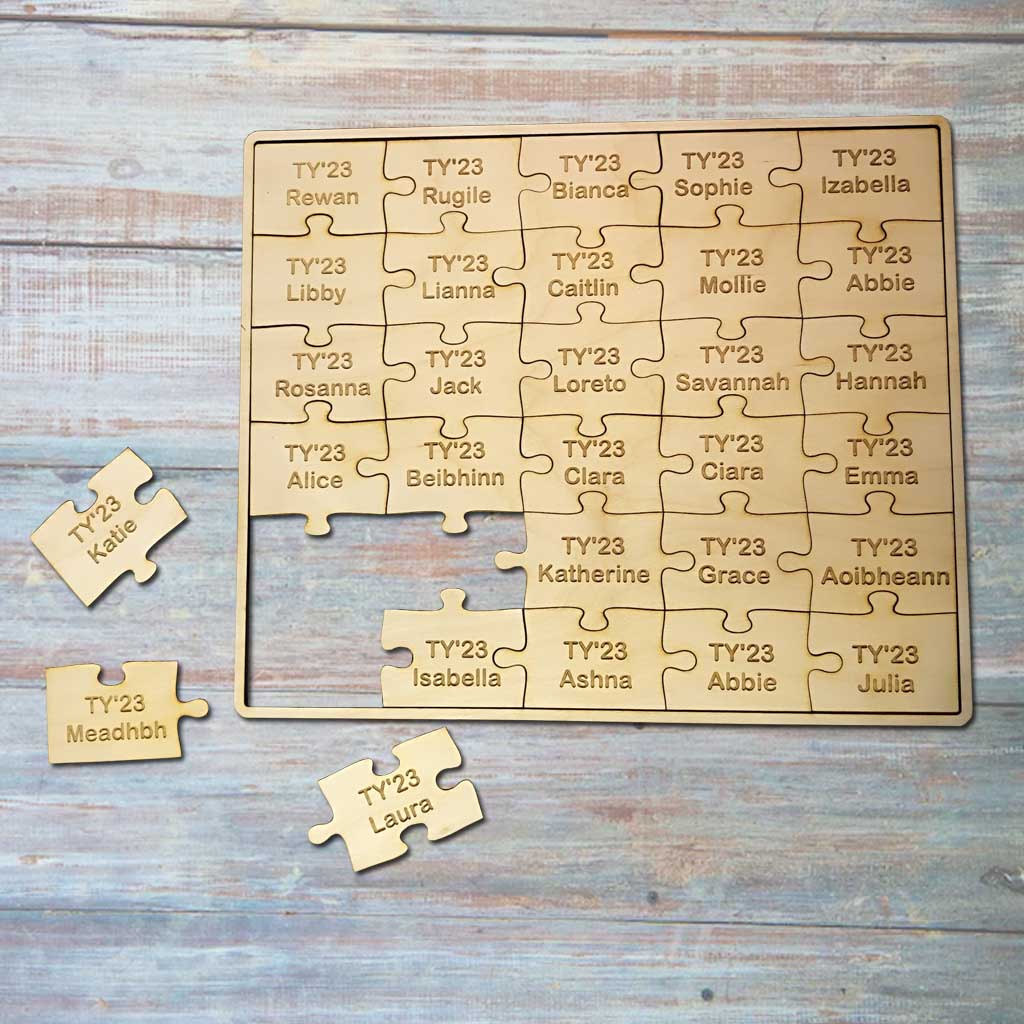 TY'23
Rewan
TY'23
Rugile
TY'23
Bianca
TY'23
Sophie
TY'23
Izabella
TY'23
Libby
TY'23
Lianna
TY'23
Caitlin
TY'23
Mollie
TY'23
Abbie
TY'23
Rosanna
TY'23
Jack
TY'23
Loreto
TY'23
Savannah
TY'23
Hannah
TY'23
Alice
TY'23
Beibhinn
TY'23
Clara
TY'23
Ciara
TY'23
Emma
TY'23
Katie
TY'23
Katherine
TY'23
Grace
TY'23
Aoibheann
TY'23
Isabella
TY'23
Ashna
TY'23
Abbie
TY'23
Julia
TY'23
Meadhbh
TY'23
Laura